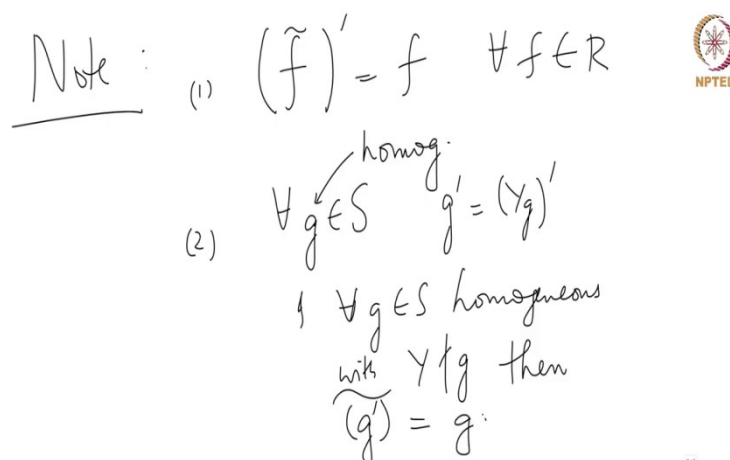 Note : (1) (f̃)′ = f ∀ f ∈ R
NPTEL
homog.
(2) ∀ g ∈ S g′ = (Yg)′
& ∀ g ∈ S homogeneous
with Y ∤ g then
(g′)~ = g.